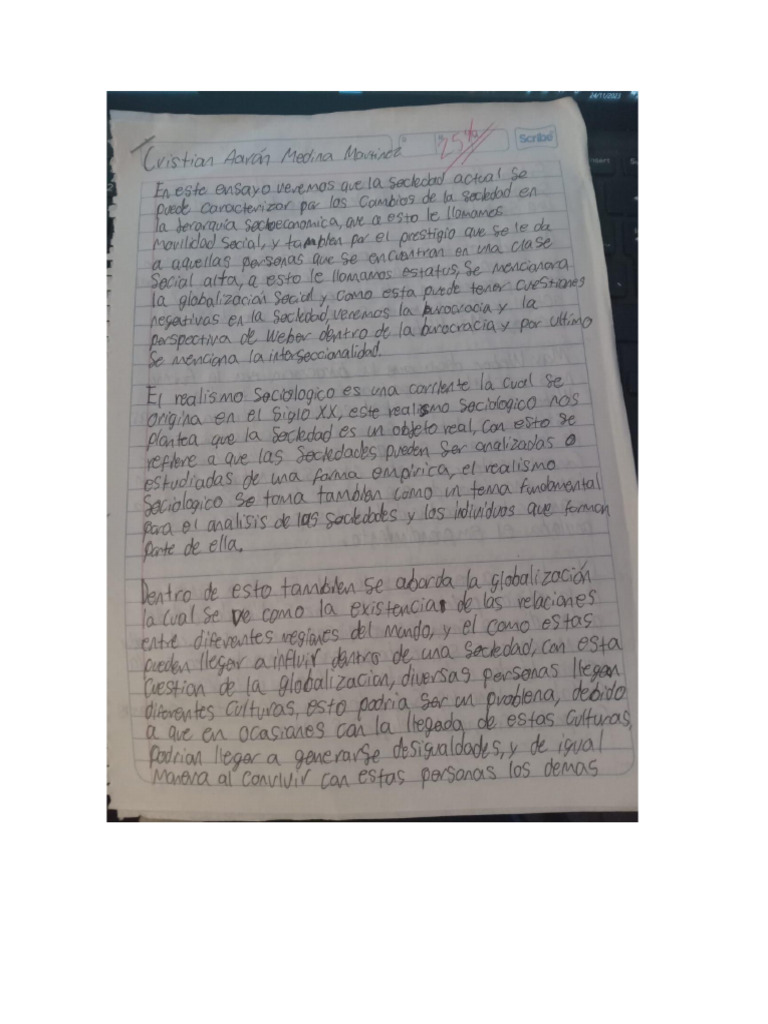 24/11/2023
Cristian Aarón Medina Martinez
25%
Scribe
En este ensayo veremos que la sociedad actual se
puede caracterizar por los cambios de la sociedad en
la Jerarquia socioeconomica, que a esto le llamamos
Movilidad Social, y tambien por el prestigio que se le da
a aquellas personas que se encuentran en una clase
Social alta, a esto le llamamos estatus, se mencionara
la globalización social y como esta puede tener cuestiones
negativas en la sociedad, veremos la burocracia y la
perspectiva de Weber dentro de la burocracia y por ultimo
se menciona la interseccionalidad.
El realismo Sociologico es una corriente la cual se
origina en el siglo XX, este realismo sociologico nos
plantea que la sociedad es un objeto real, con esto se
refiere a que las sociedades pueden ser analizadas o
estudiadas de una forma empirica, el realismo
Sociologico se toma tambien como un tema fundamental
para el analisis de las sociedades y los individuos que forman
parte de ella.
Dentro de esto tambien se aborda la globalización
la cual se ve como la existencia de las relaciones
entre diferentes regiones del mundo, y el como estas
pueden llegar a influir dentro de una sociedad, con esta
cuestion de la globalizacion, diversas personas llegan
diferentes culturas, esto podria ser un problema, debido
a que en ocasiones con la llegada de estas culturas,
podrian llegar a generarse desigualdades, y de igual
manera al convivir con estas personas los demas